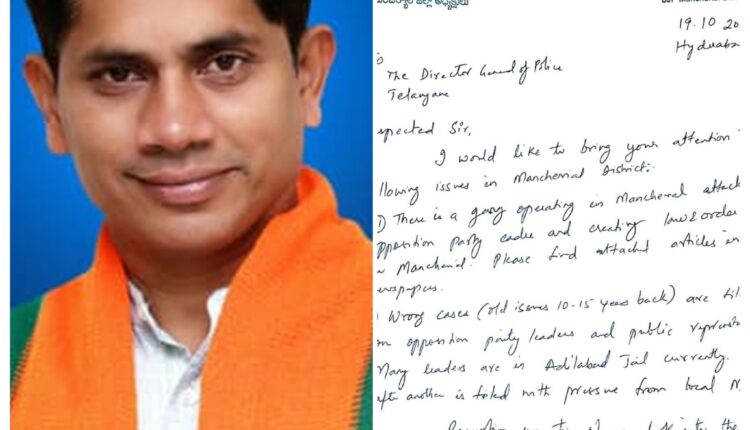 మంచిర్యాల జిల్లా అధ్యక్షులు
BJP
19.10 20
Hyderaba
The Director General of Police
Telangana
spected Sir,
I would like to bring your attention
llowing issues in Mancherial District:
1) There is a gang operating in Mancherial attack
opposition party cadre and creating law & order
Mancherial. Please find attached articles in
ewspapers.
Wrong cases (old issues 10-15 years back) are
opposition party leaders and public represent
Many leaders are in Adilabad Jail currently.
after another is filed with pressure from local M